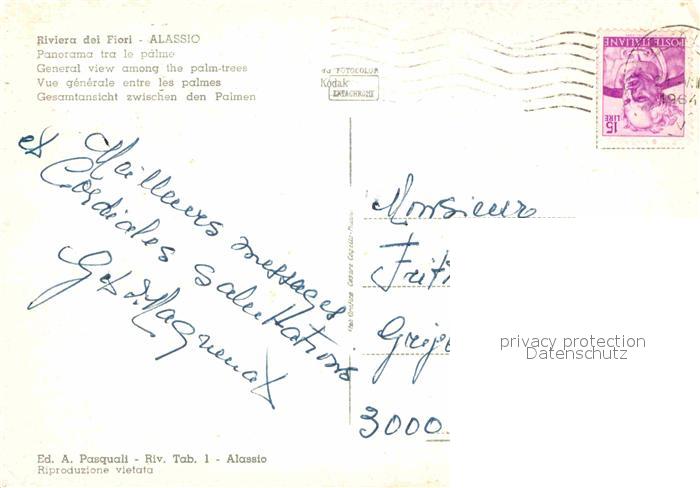 Riviera dei Fiori - ALASSIO
Panorama tra le palme
General view among the palm-trees
Vue générale entre les palmes
Gesamtansicht zwischen den Palmen
da FOTOCOLOR
Kodak
EKTACHROME
POSTE ITALIANE
15 LIRE
1964
Meilleurs messages
et Cordiales salutations
G et J. Magnenat
Monsieur
Fritz
3000
privacy protection
Datenschutz
Ed. A. Pasquali - Riv. Tab. 1 - Alassio
Riproduzione vietata